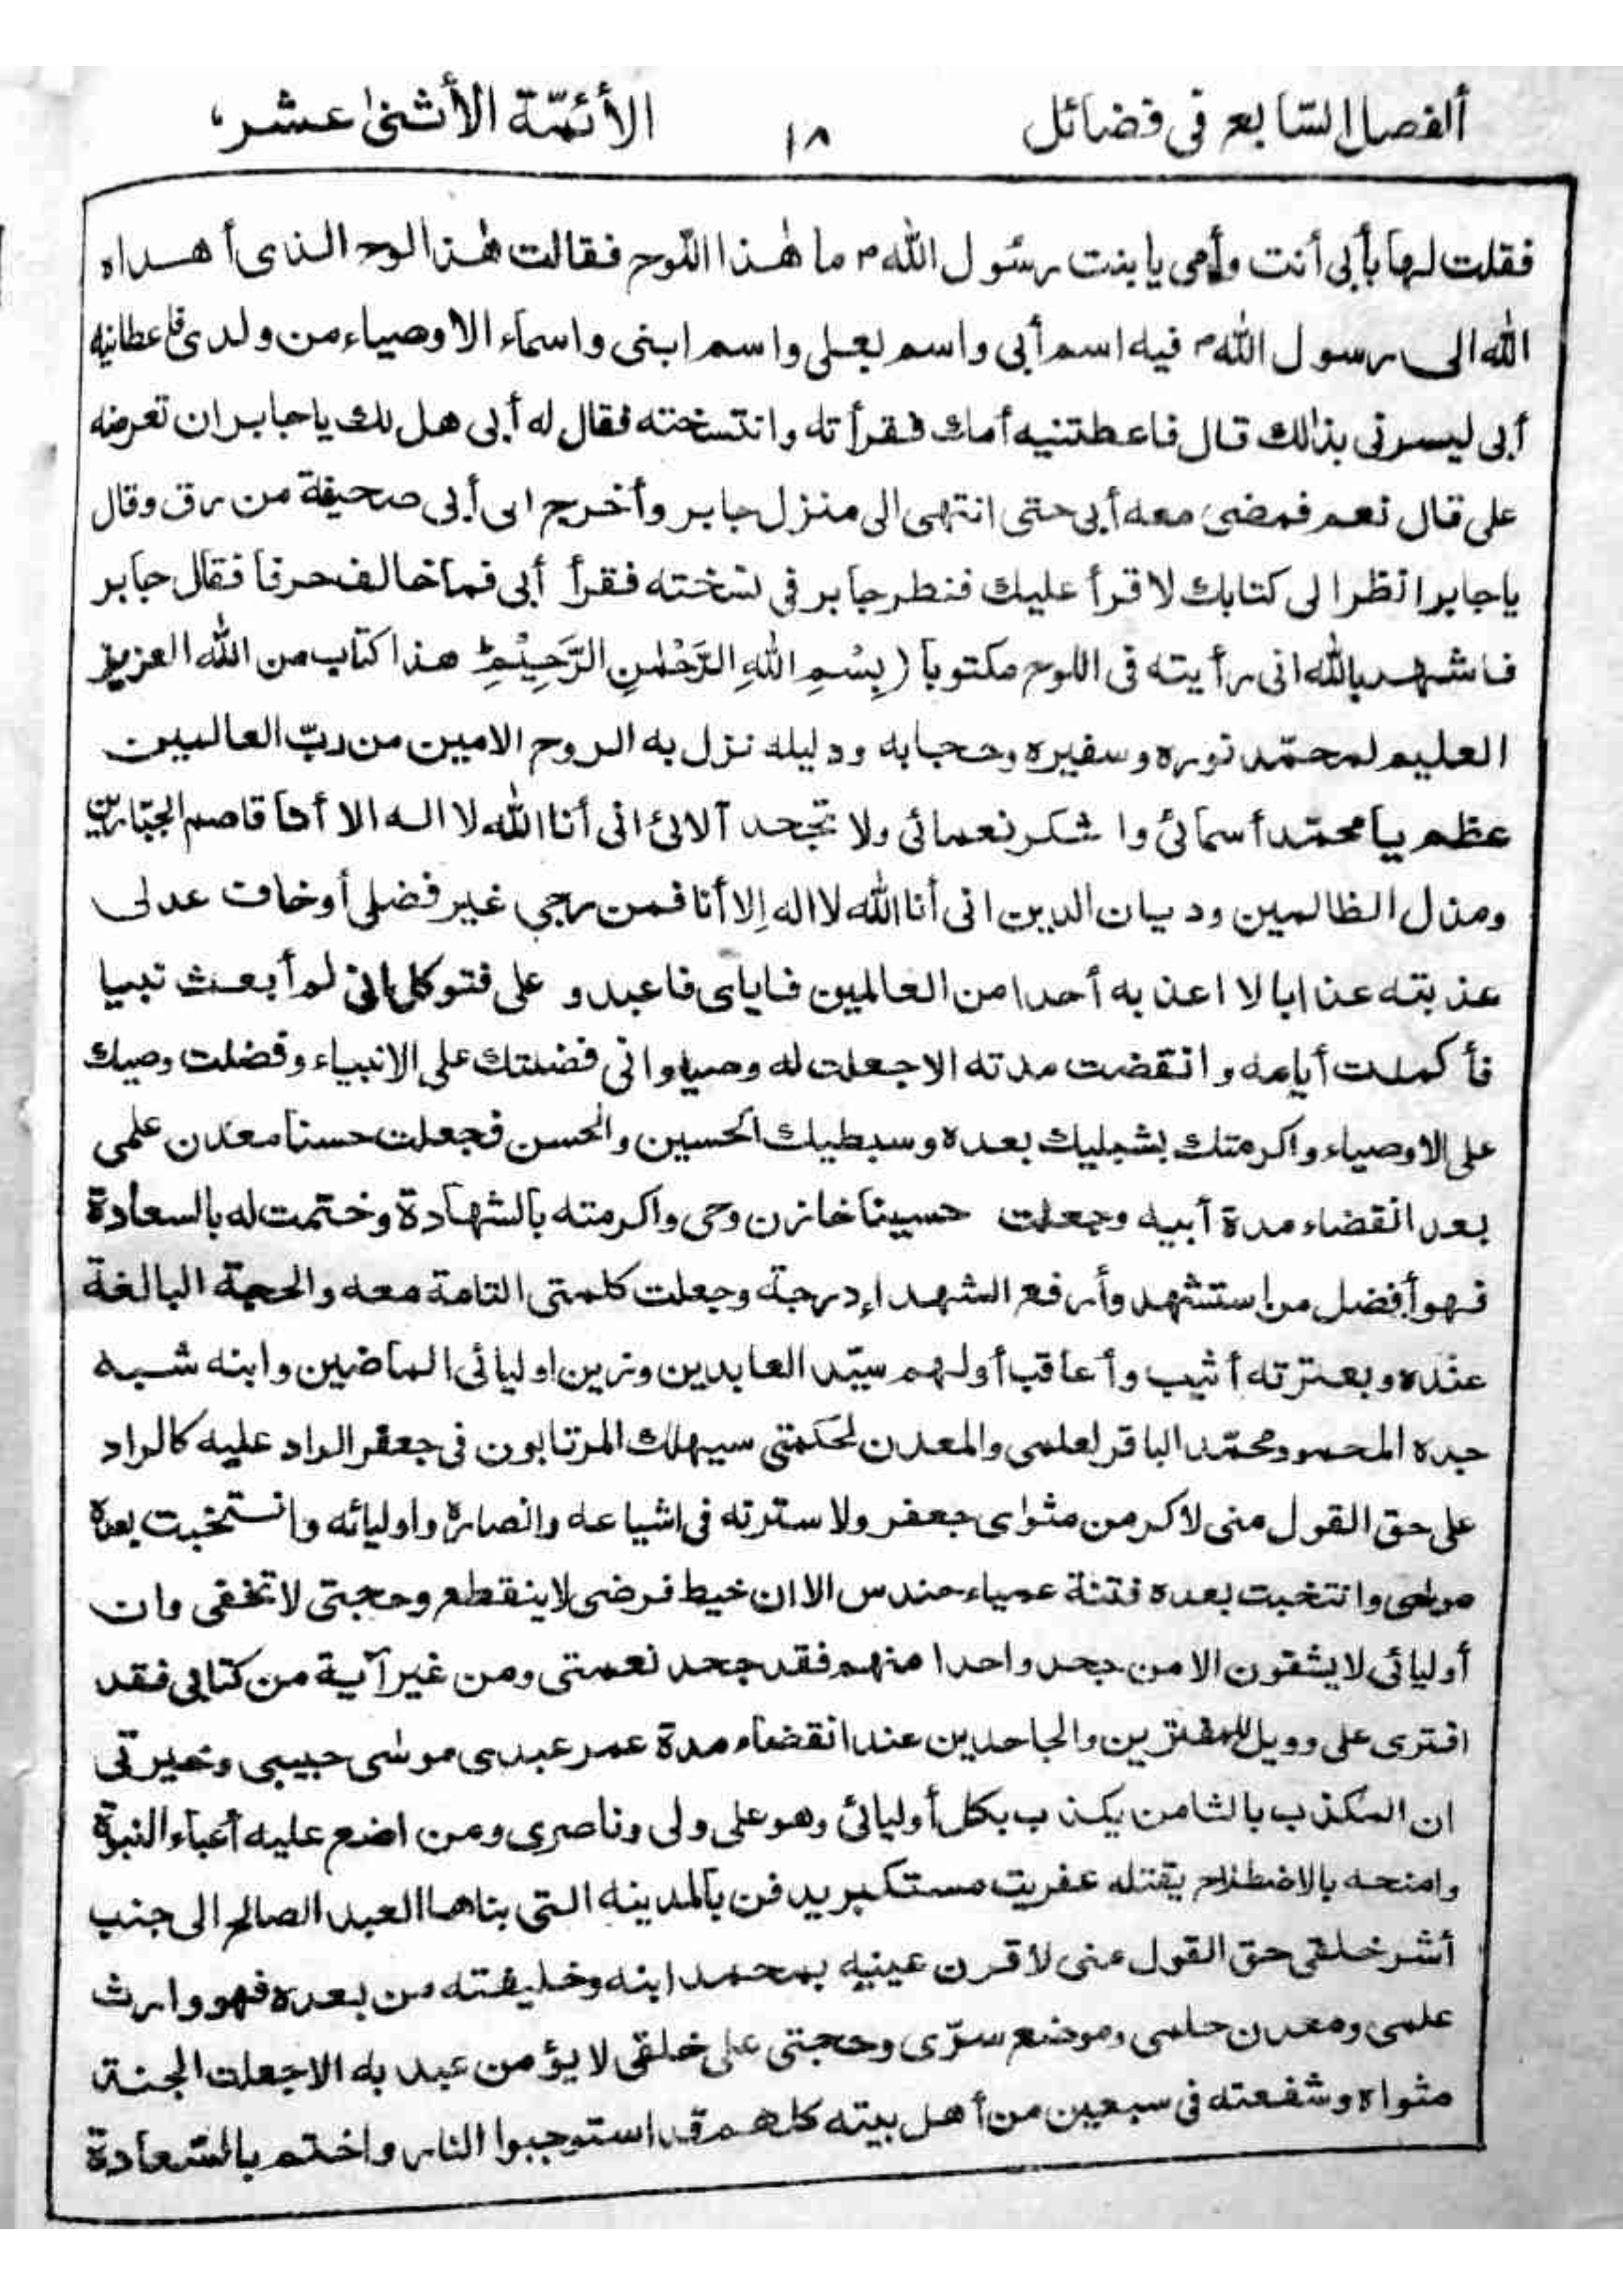 ألفصل السّابع فى فضائل ١٨ الأئمّة الأثنىٰ عشر،
فقلت لها بأبى أنت وأمى يا بنت رسُول الله ما هٰذا اللّوح فقالت هٰذا الوح الذى أهداه
الله الى رسول الله فيه اسم أبى واسم بعلى واسم ابنى واسماء الاوصياء من ولدى فاعطانيه
أبى ليسرنى بذالك قال فاعطتنيه أمك فقرأته وانتسخته فقال له أبى هل لك يا جابر ان تعرضه
على قال نعم فمضى معه أبى حتى انتهى الى منزل جابر وأخرج ابى أبى صحيفة من رق وقال
يا جابر انظر الى كتابك لاقرأ عليك فنطر جابر فى نسخته فقرأ أبى فما خالف حرفا فقال جابر
فاشهد بالله انى رأيته فى اللوح مكتوبا (بِسْمِ اللهِ الرَّحْمٰنِ الرَّحِيْمِ هذا كتاب من الله العزيز
العليم لمحمّد نوره وسفيره وحجابه ودليله نزل به الروح الامين من ربّ العالمين
عظم يا محمّد أسمائى واشكر نعمائى ولا تجحد آلائى انى أنا الله لا اله الا أنا قاصم الجبّارين
ومذل الظالمين وديان الدين انى أنا الله لا اله إلا أنا فمن رجى غير فضلى أو خاف عدلى
عذبته عذابا لا اعذبه أحدا من العالمين فاياى فاعبد و على فتوكل انى لم أبعث نبيا
فأكملت أيامه وانقضت مدته الا جعلت له وصيا وانى فضلتك على الانبياء وفضلت وصيك
على الاوصياء واكرمتك بشبليك بعده وسبطيك الحسين والحسن فجعلت حسنا معدن علمى
بعد انقضاء مدة أبيه وجعلت حسينا خازن وحى واكرمته بالشهادة وختمت له بالسعادة
فهو أفضل من استشهد وأرفع الشهداء درجة وجعلت كلمتى التامة معه والحجة البالغة
عنده وبعترته أثيب وأعاقب أولهم سيّد العابدين وزين اوليائى الماضين وابنه شبه
جده المحمود محمّد الباقر لعلمى والمعدن لحكمتى سيهلك المرتابون فى جعفر الراد عليه كالراد
على حق القول منى لاكرمن مثواى جعفر ولاسترته فى اشياعه وانصاره واوليائه وانتخبت بعده
موسى وانتخبت بعده فتنة عمياء حندس الا ان خيط فرضى لا ينقطع وحجتى لا تخفى وان
أوليائى لا يشقون الا من جحد واحدا منهم فقد جحد نعمتى ومن غير آية من كتابى فقد
افترى على وويل للمفترين والجاحدين عند انقضاء مدة عمر عبدى موسٰى حبيبى وخيرتى
ان المكذب بالثامن يكذب بكل أوليائى وهو على ولى وناصرى ومن اضع عليه أعباء النبوة
وامنحه بالاضطلاح يقتله عفريت مستكبر يدفن بالمدينه التى بناها العبد الصالح الى جنب
أشر خلقى حق القول منى لاقرن عينيه بمحمد ابنه وخليفته من بعده فهو وارث
علمى ومعدن حلمى وموضع سرّى وحجتى على خلقى لا يؤمن عبد به الا جعلت الجنة
مثواه وشفعته فى سبعين من أهل بيته كلهم قد استوجبوا النار واختم بالسّعادة